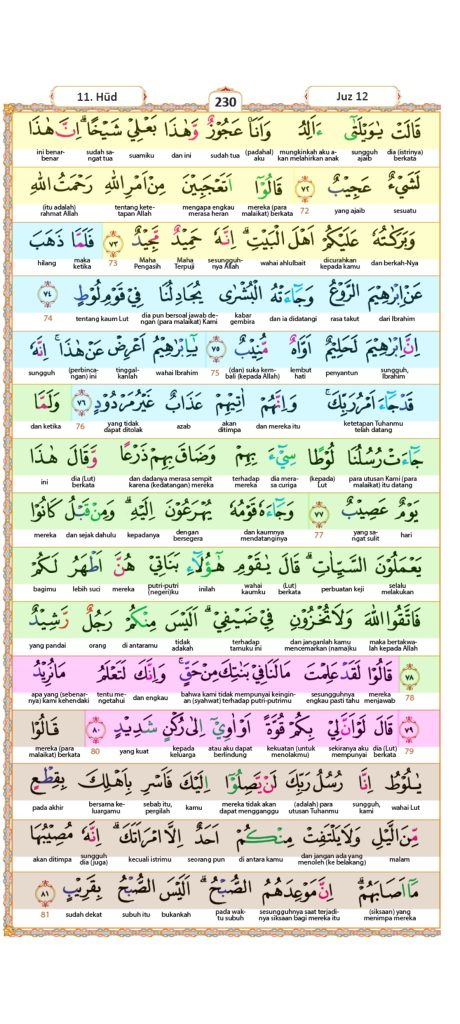 11. Hūd
230
Juz 12
قَالَتْ يٰوَيْلَتٰٓى ءَاَلِدُ وَاَنَا۠ عَجُوْزٌ وَّهٰذَا بَعْلِيْ شَيْخًا ۗ اِنَّ هٰذَا
dia (istrinya) berkata | sungguh ajaib | mungkinkah aku akan melahirkan anak | (padahal) aku | sudah tua | dan ini | suamiku | sudah sangat tua | ini benar-benar
لَشَيْءٌ عَجِيْبٌ ٧٢ قَالُوْٓا اَتَعْجَبِيْنَ مِنْ اَمْرِ اللّٰهِ رَحْمَتُ اللّٰهِ
sesuatu | yang ajaib | 72 | mereka (para malaikat) berkata | mengapa engkau merasa heran | tentang ketetapan Allah | (itu adalah) rahmat Allah
وَبَرَكٰتُهٗ عَلَيْكُمْ اَهْلَ الْبَيْتِ ۗ اِنَّهٗ حَمِيْدٌ مَّجِيْدٌ ٧٣ فَلَمَّا ذَهَبَ
dan berkah-Nya | dicurahkan kepada kamu | wahai ahlulbait | sesungguhnya Allah | Maha Terpuji | Maha Pengasih | 73 | maka ketika | hilang
عَنْ اِبْرٰهِيْمَ الرَّوْعُ وَجَاۤءَتْهُ الْبُشْرٰى يُجَادِلُنَا فِيْ قَوْمِ لُوْطٍ ٧٤
dari Ibrahim | rasa takut | dan ia didatangi | kabar gembira | dia pun bersoal jawab dengan (para malaikat) Kami | tentang kaum Lut | 74
اِنَّ اِبْرٰهِيْمَ لَحَلِيْمٌ اَوَّاهٌ مُّنِيْبٌ ٧٥ يٰٓاِبْرٰهِيْمُ اَعْرِضْ عَنْ هٰذَا ۚ اِنَّهٗ
sungguh, Ibrahim | penyantun | lembut hati | (dan) suka kembali (kepada Allah) | 75 | wahai Ibrahim | tinggalkanlah | (perbincangan) ini | sungguh
قَدْ جَاۤءَ اَمْرُ رَبِّكَ ۚ وَاِنَّهُمْ اٰتِيْهِمْ عَذَابٌ غَيْرُ مَرْدُوْدٍ ٧٦ وَلَمَّا
ketetapan Tuhanmu telah datang | dan mereka itu | akan ditimpa | azab | yang tidak dapat ditolak | 76 | dan ketika
جَاۤءَتْ رُسُلُنَا لُوْطًا سِيْۤءَ بِهِمْ وَضَاقَ بِهِمْ ذَرْعًا وَّقَالَ هٰذَا
para utusan Kami (para malaikat) itu datang | (kepada) Lut | dia merasa curiga | terhadap mereka | dan dadanya merasa sempit karena (kedatangan) mereka | dia (Lut) berkata | ini
يَوْمٌ عَصِيْبٌ ٧٧ وَجَاۤءَهٗ قَوْمُهٗ يُهْرَعُوْنَ اِلَيْهِ ۗ وَمِنْ قَبْلُ كَانُوْا
hari | yang sangat sulit | 77 | dan kaumnya mendatanginya | dengan bersegera | kepadanya | dan sejak dahulu | mereka
يَعْمَلُوْنَ السَّيِّاٰتِ ۗ قَالَ يٰقَوْمِ هٰٓؤُلَاۤءِ بَنَاتِيْ هُنَّ اَطْهَرُ لَكُمْ
selalu melakukan | perbuatan keji | (Lut) berkata | wahai kaumku | inilah | putri-putri (negeri)ku | mereka | lebih suci | bagimu
فَاتَّقُوا اللّٰهَ وَلَا تُخْزُوْنِ فِيْ ضَيْفِيْ ۗ اَلَيْسَ مِنْكُمْ رَجُلٌ رَّشِيْدٌ
maka bertakwalah kepada Allah | dan janganlah kamu mencemarkan (nama)ku | terhadap tamuku ini | tidak adakah | di antaramu | orang | yang pandai
٧٨ قَالُوْا لَقَدْ عَلِمْتَ مَا لَنَا فِيْ بَنٰتِكَ مِنْ حَقٍّ ۚ وَاِنَّكَ لَتَعْلَمُ مَا نُرِيْدُ
78 | mereka menjawab | sesungguhnya engkau pasti tahu | bahwa kami tidak mempunyai keinginan (syahwat) terhadap putri-putrimu | dan engkau | tentu mengetahui | apa yang (sebenarnya) kami kehendaki
٧٩ قَالَ لَوْ اَنَّ لِيْ بِكُمْ قُوَّةً اَوْ اٰوِيْٓ اِلٰى رُكْنٍ شَدِيْدٍ ٨٠ قَالُوْا
79 | dia (Lut) berkata | sekiranya aku mempunyai | kekuatan (untuk menolakmu) | atau aku dapat berlindung | kepada keluarga | yang kuat | 80 | mereka (para malaikat) berkata
يٰلُوْطُ اِنَّا رُسُلُ رَبِّكَ لَنْ يَّصِلُوْٓا اِلَيْكَ فَاَسْرِ بِاَهْلِكَ بِقِطْعٍ
wahai Lut | sungguh, kami | (adalah) para utusan Tuhanmu | mereka tidak akan dapat mengganggu | kamu | sebab itu, pergilah | bersama keluargamu | pada akhir
مِّنَ الَّيْلِ وَلَا يَلْتَفِتْ مِنْكُمْ اَحَدٌ اِلَّا امْرَاَتَكَ ۗ اِنَّهٗ مُصِيْبُهَا
malam | dan jangan ada yang menoleh (ke belakang) | di antara kamu | seorang pun | kecuali istrimu | sungguh dia (juga) | akan ditimpa
مَآ اَصَابَهُمْ ۗ اِنَّ مَوْعِدَهُمُ الصُّبْحُ ۗ اَلَيْسَ الصُّبْحُ بِقَرِيْبٍ ٨١
(siksaan) yang menimpa mereka | sesungguhnya saat terjadinya siksaan bagi mereka itu | pada waktu subuh | bukankah | subuh itu | sudah dekat | 81